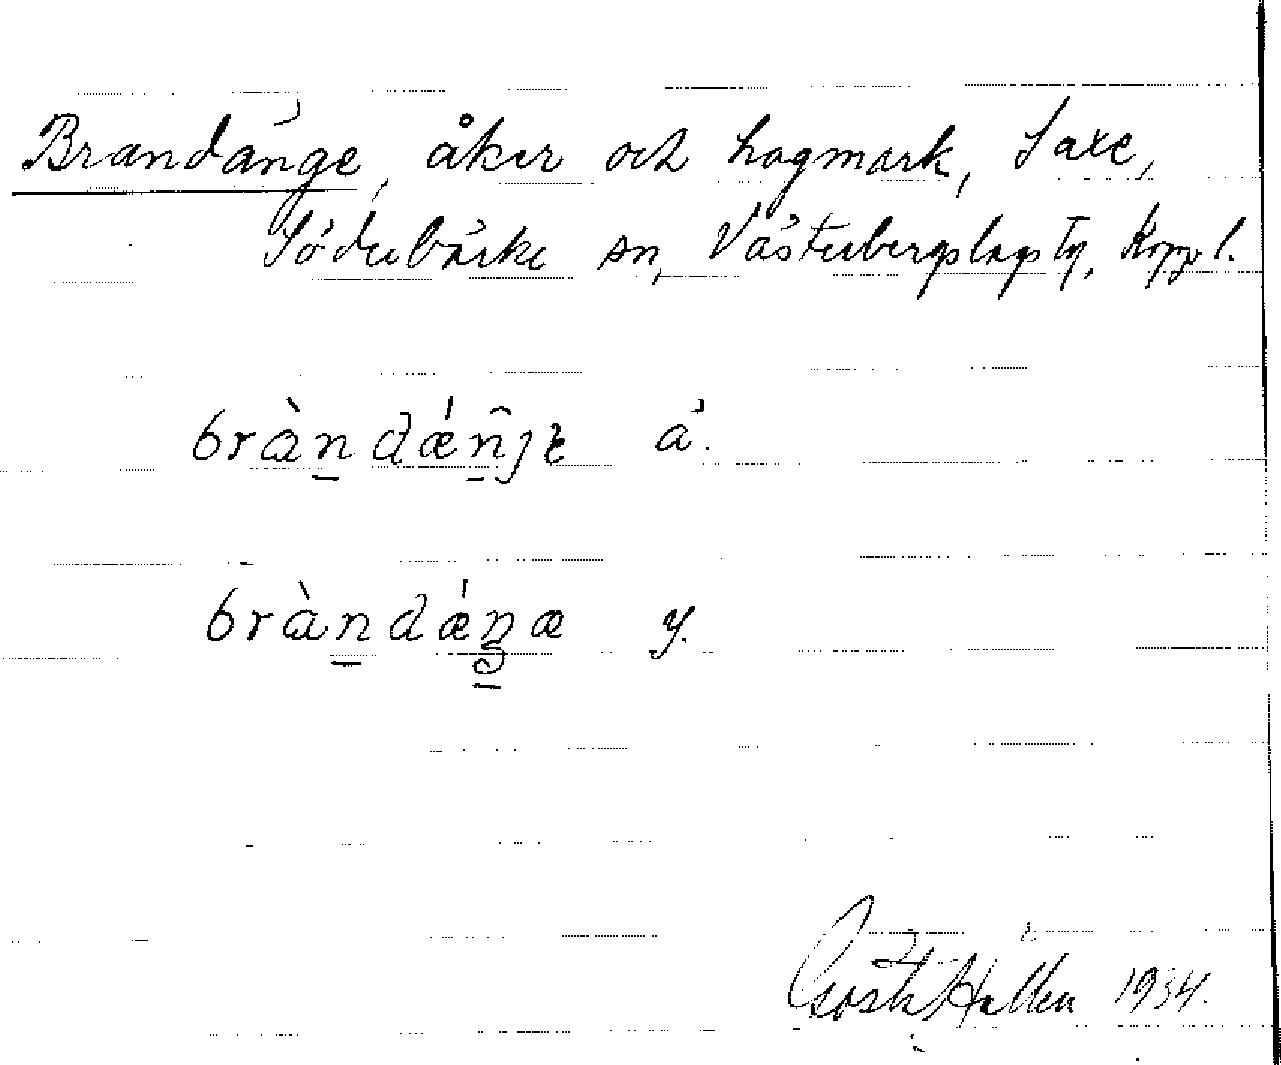 Brandänge, åker och hagmark, Saxe,
Söderbärke sn, Västerbergslags tg, Kopp. l.
bràndǽn̂jɛ ä.
bràndǽŋæ y.
Gösta Hallén 1934.